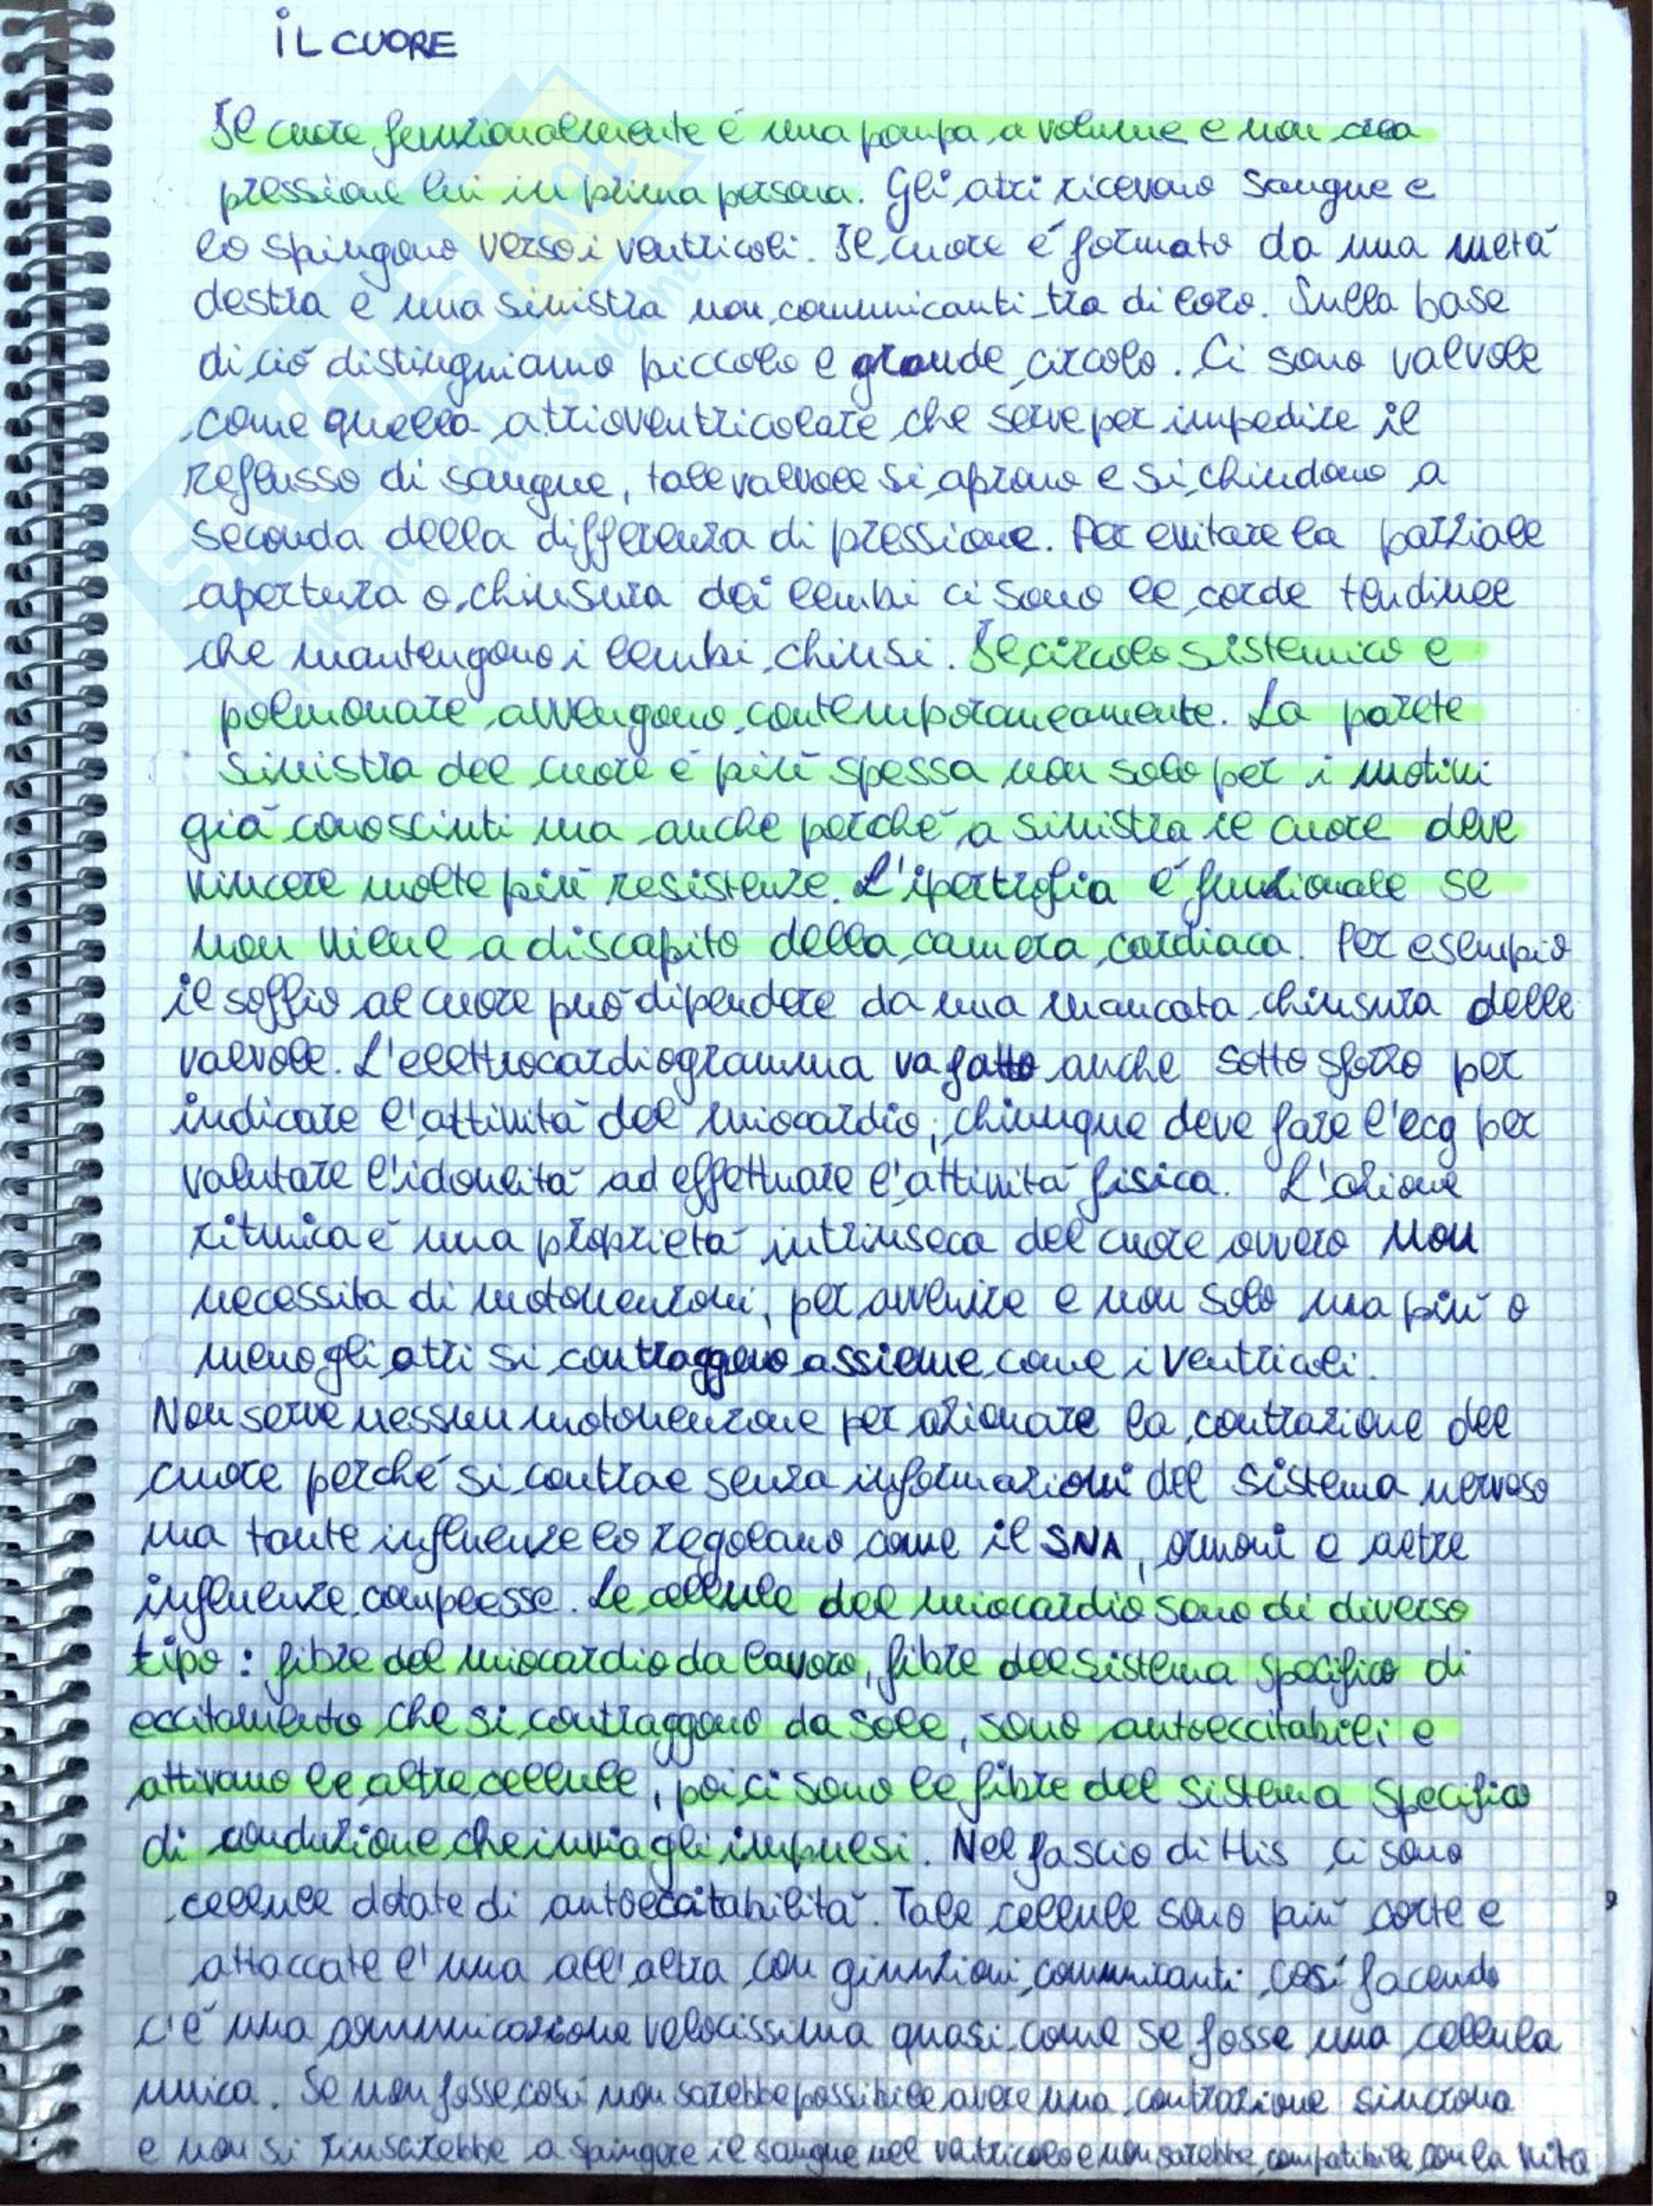 IL CUORE
Il cuore funzionalmente è una pompa a volume e non crea
pressione lui in prima persona. Gli atri ricevono sangue e
lo spingono verso i ventricoli. Il cuore è formato da una metà
destra e una sinistra non comunicanti tra di loro. Sulla base
di ciò distinguiamo piccolo e grande circolo. Ci sono valvole
come quella atrioventricolare che serve per impedire il
reflusso di sangue, tale valvole si aprono e si chiudono a
seconda della differenza di pressione. Per evitare la parziale
apertura o chiusura dei lembi ci sono le corde tendinee
che mantengono i lembi chiusi. Il circolo sistemico e
polmonare avvengono contemporaneamente. La parete
sinistra del cuore è più spessa non solo per i motivi
già conosciuti ma anche perché a sinistra il cuore deve
vincere molte più resistenze. L'ipertrofia è funzionale se
non viene a discapito della camera cardiaca. Per esempio
il soffio al cuore può dipendere da una mancata chiusura delle
valvole. L'elettrocardiogramma va fatto anche sotto sforzo per
indicare l'attività del miocardio; chiunque deve fare l'ecg per
valutare l'idoneità ad effettuare l'attività fisica. L'azione
ritmica è una proprietà intrinseca del cuore ovvero non
necessita di motoneuroni, per avvenire e non solo ma più o
meno gli atri si contraggono assieme come i ventricoli.
Non serve nessun motoneurone per azionare la contrazione del
cuore perché si contrae senza informazioni del sistema nervoso
ma tante influenze lo regolano come il SNA, ormoni e altre
influenze complesse. Le cellule del miocardio sono di diverso
tipo: fibre del miocardio da lavoro, fibre del sistema specifico di
eccitamento che si contraggono da sole, sono autoeccitabili e
attivano le altre cellule, poi ci sono le fibre del sistema specifico
di conduzione che invia gli impulsi. Nel fascio di His ci sono
cellule dotate di autoeccitabilità. Tale cellule sono più corte e
attaccate l'una all'altra con giunzioni comunicanti così facendo
c'è una comunicazione velocissima quasi come se fosse una cellula
unica. Se non fosse così non sarebbe possibile avere una contrazione sincrona
e non si riuscirebbe a spingere il sangue nel ventricolo e non sarebbe compatibile con la vita